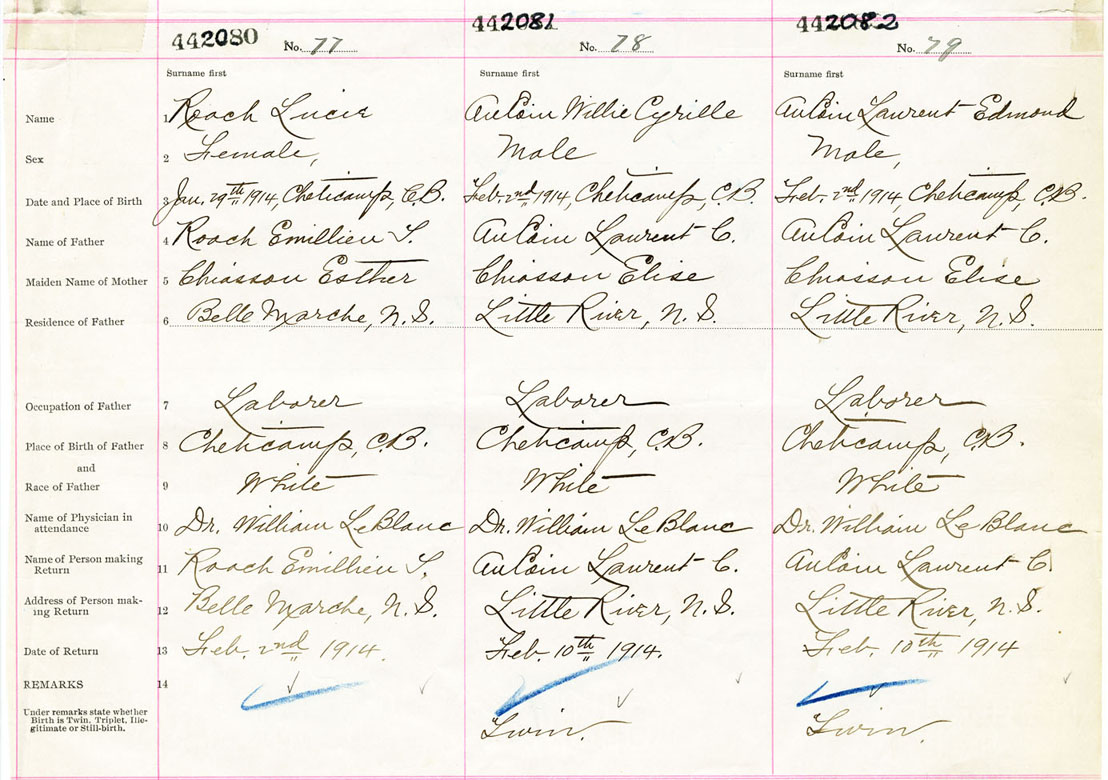 442080 No. 77 442081 No. 78 442082 No. 79
Surname first Surname first Surname first
Name 1 Roach Lucie AuCoin Willie Cyrille AuCoin Laurent Edmond
Sex 2 Female, Male Male,
Date and Place of Birth 3 Jan. 29th 1914, Cheticamp, C.B. Feb. 2nd 1914, Cheticamp, C.B. Feb. 2nd 1914, Cheticamp, C.B.
Name of Father 4 Roach Emillien S. AuCoin Laurent C. AuCoin Laurent C.
Maiden Name of Mother 5 Chiasson Esther Chiasson Elise Chiasson Elise
Residence of Father 6 Belle Marche, N.S. Little River, N.S. Little River, N.S.
Occupation of Father 7 Laborer Laborer Laborer
Place of Birth of Father 8 Cheticamp, C.B. Cheticamp, C.B. Cheticamp, C.B.
and
Race of Father 9 White White White
Name of Physician in
attendance 10 Dr. William LeBlanc Dr. William LeBlanc Dr. William LeBlanc
Name of Person making
Return 11 Roach Emillien S. AuCoin Laurent C. AuCoin Laurent C.
Address of Person mak-
ing Return 12 Belle Marche, N.S. Little River, N.S. Little River, N.S.
Date of Return 13 Feb. 2nd 1914. Feb. 10th 1914. Feb. 10th 1914
REMARKS 14
Under remarks state whether
Birth is Twin, Triplet, Ille-
gitimate or Still-birth. Twin. Twin.